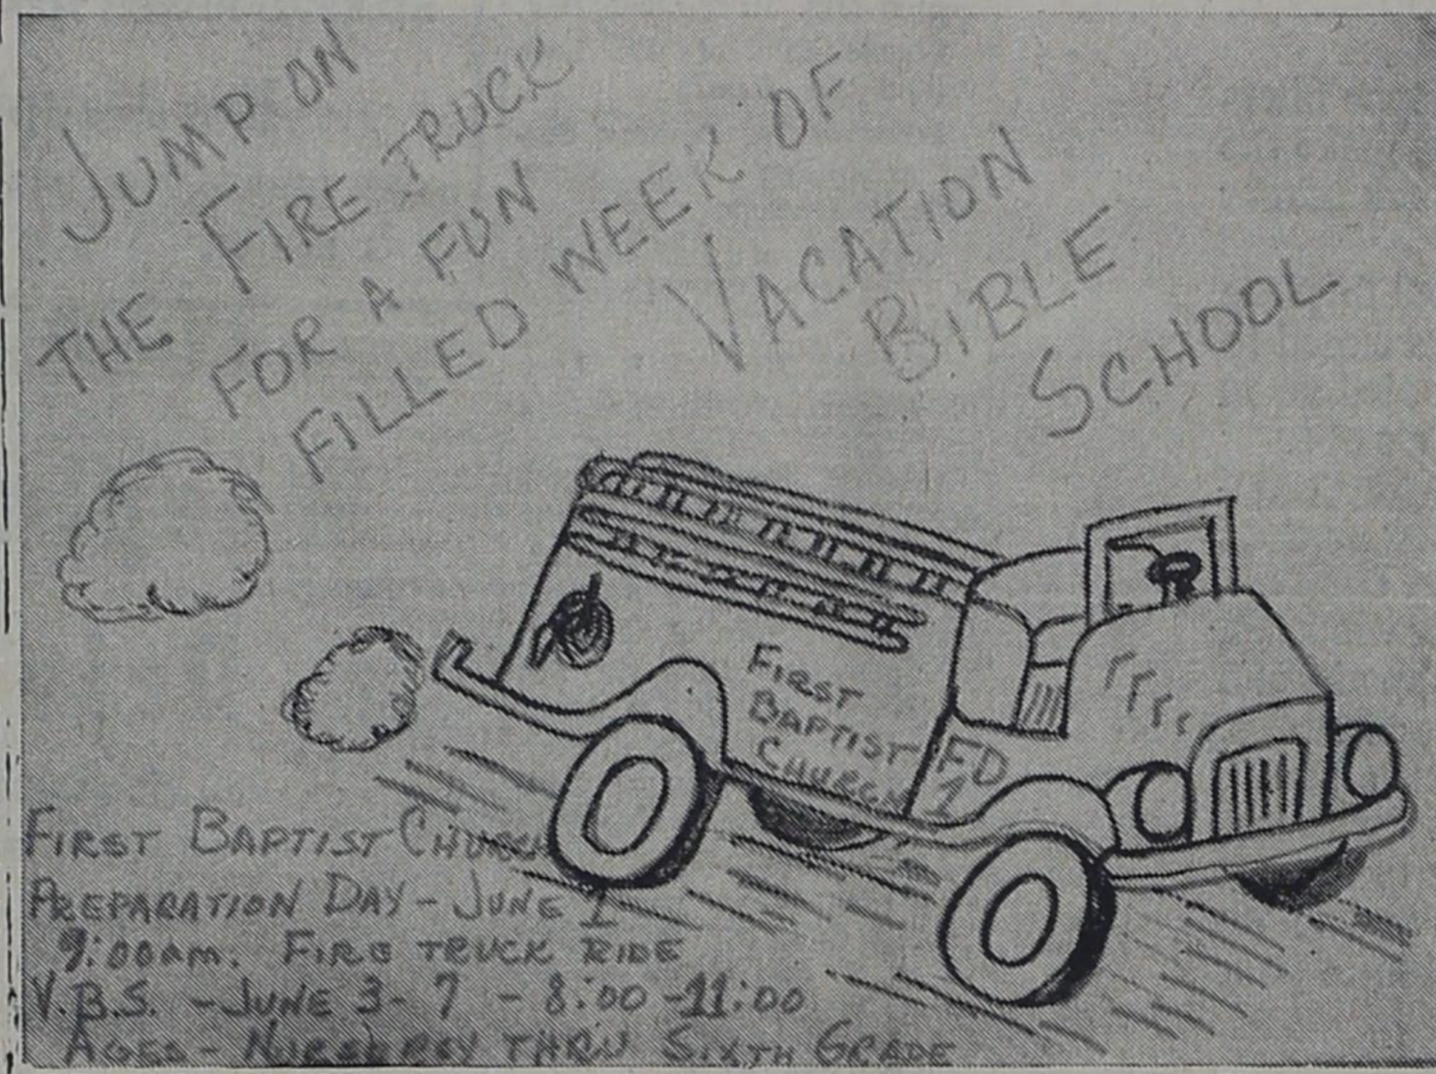 JUMP ON
THE FIRE TRUCK
FOR A FUN
FILLED WEEK OF
VACATION
BIBLE
SCHOOL
FIRST
BAPTIST
CHURCH
FD
1
FIRST BAPTIST CHURCH
PREPARATION DAY - JUNE 1
9:00 AM. FIRE TRUCK RIDE
V.B.S. - JUNE 3 - 7 - 8:00 - 11:00
AGES - NURSERY THRU SIXTH GRADE